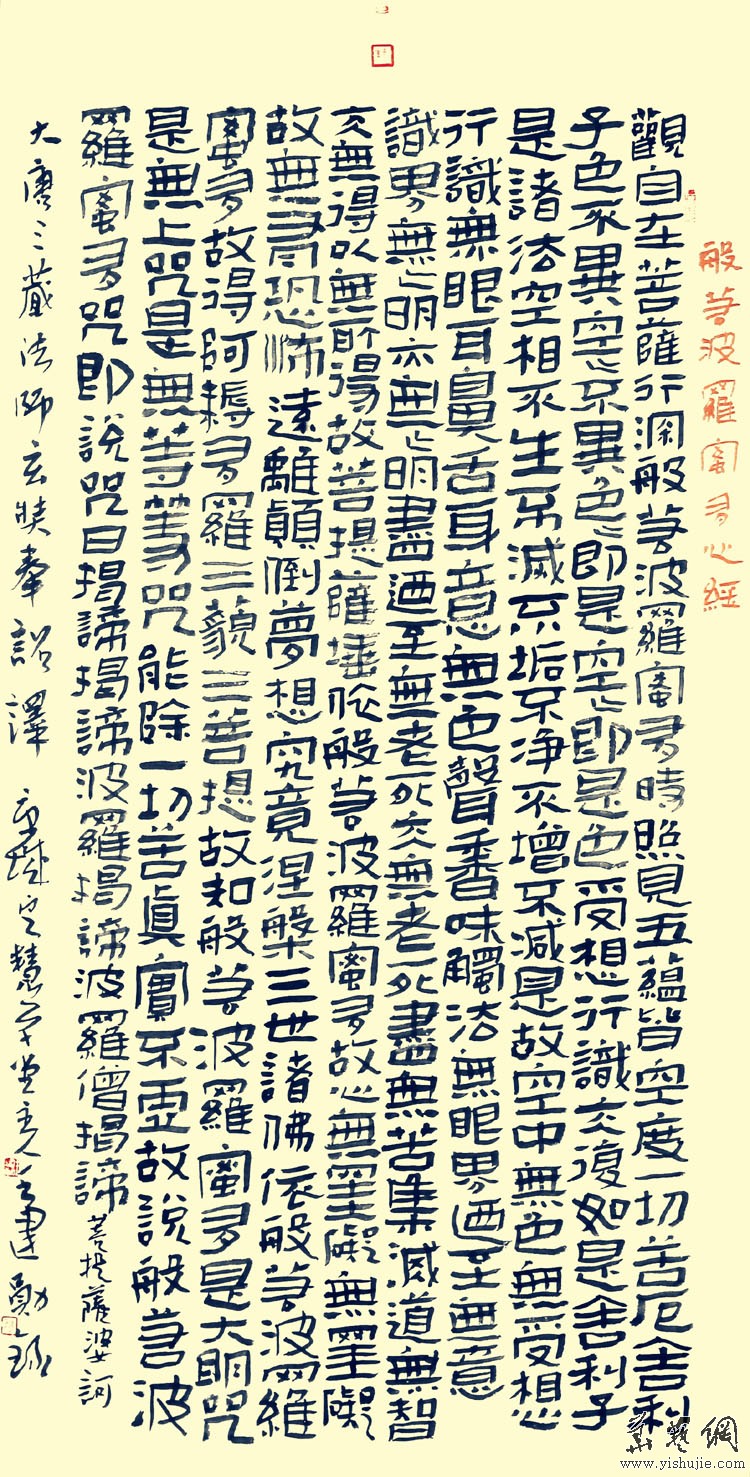 般若波羅蜜多心經
觀自在菩薩行深般若波羅蜜多時照見五蘊皆空度一切苦厄舍利
子色不異空〻不異色〻即是空〻即是色受想行識亦復如是舍利子
是諸法空相不生不滅不垢不淨不增不減是故空中無色無受想
行識無眼耳鼻舌身意無色聲香味觸法無眼界迺至無意
識界無〻明亦無〻明盡迺至無老死亦無老死盡無苦集滅道無智
亦無得以無所得故菩提薩埵依般若波羅蜜多故心無罣礙無罣礙
故無有恐怖遠離顛倒夢想究竟涅槃三世諸佛依般若波羅
蜜多故得阿耨多羅三藐三菩提故知般若波羅蜜多是大明咒
是無上咒是無等等咒能除一切苦真實不虛故說般若波
羅蜜多咒即說咒曰揭諦揭諦波羅揭諦波羅僧揭諦菩提薩婆訶
大唐三藏法師玄奘奉詔譯
www.yishujie.com